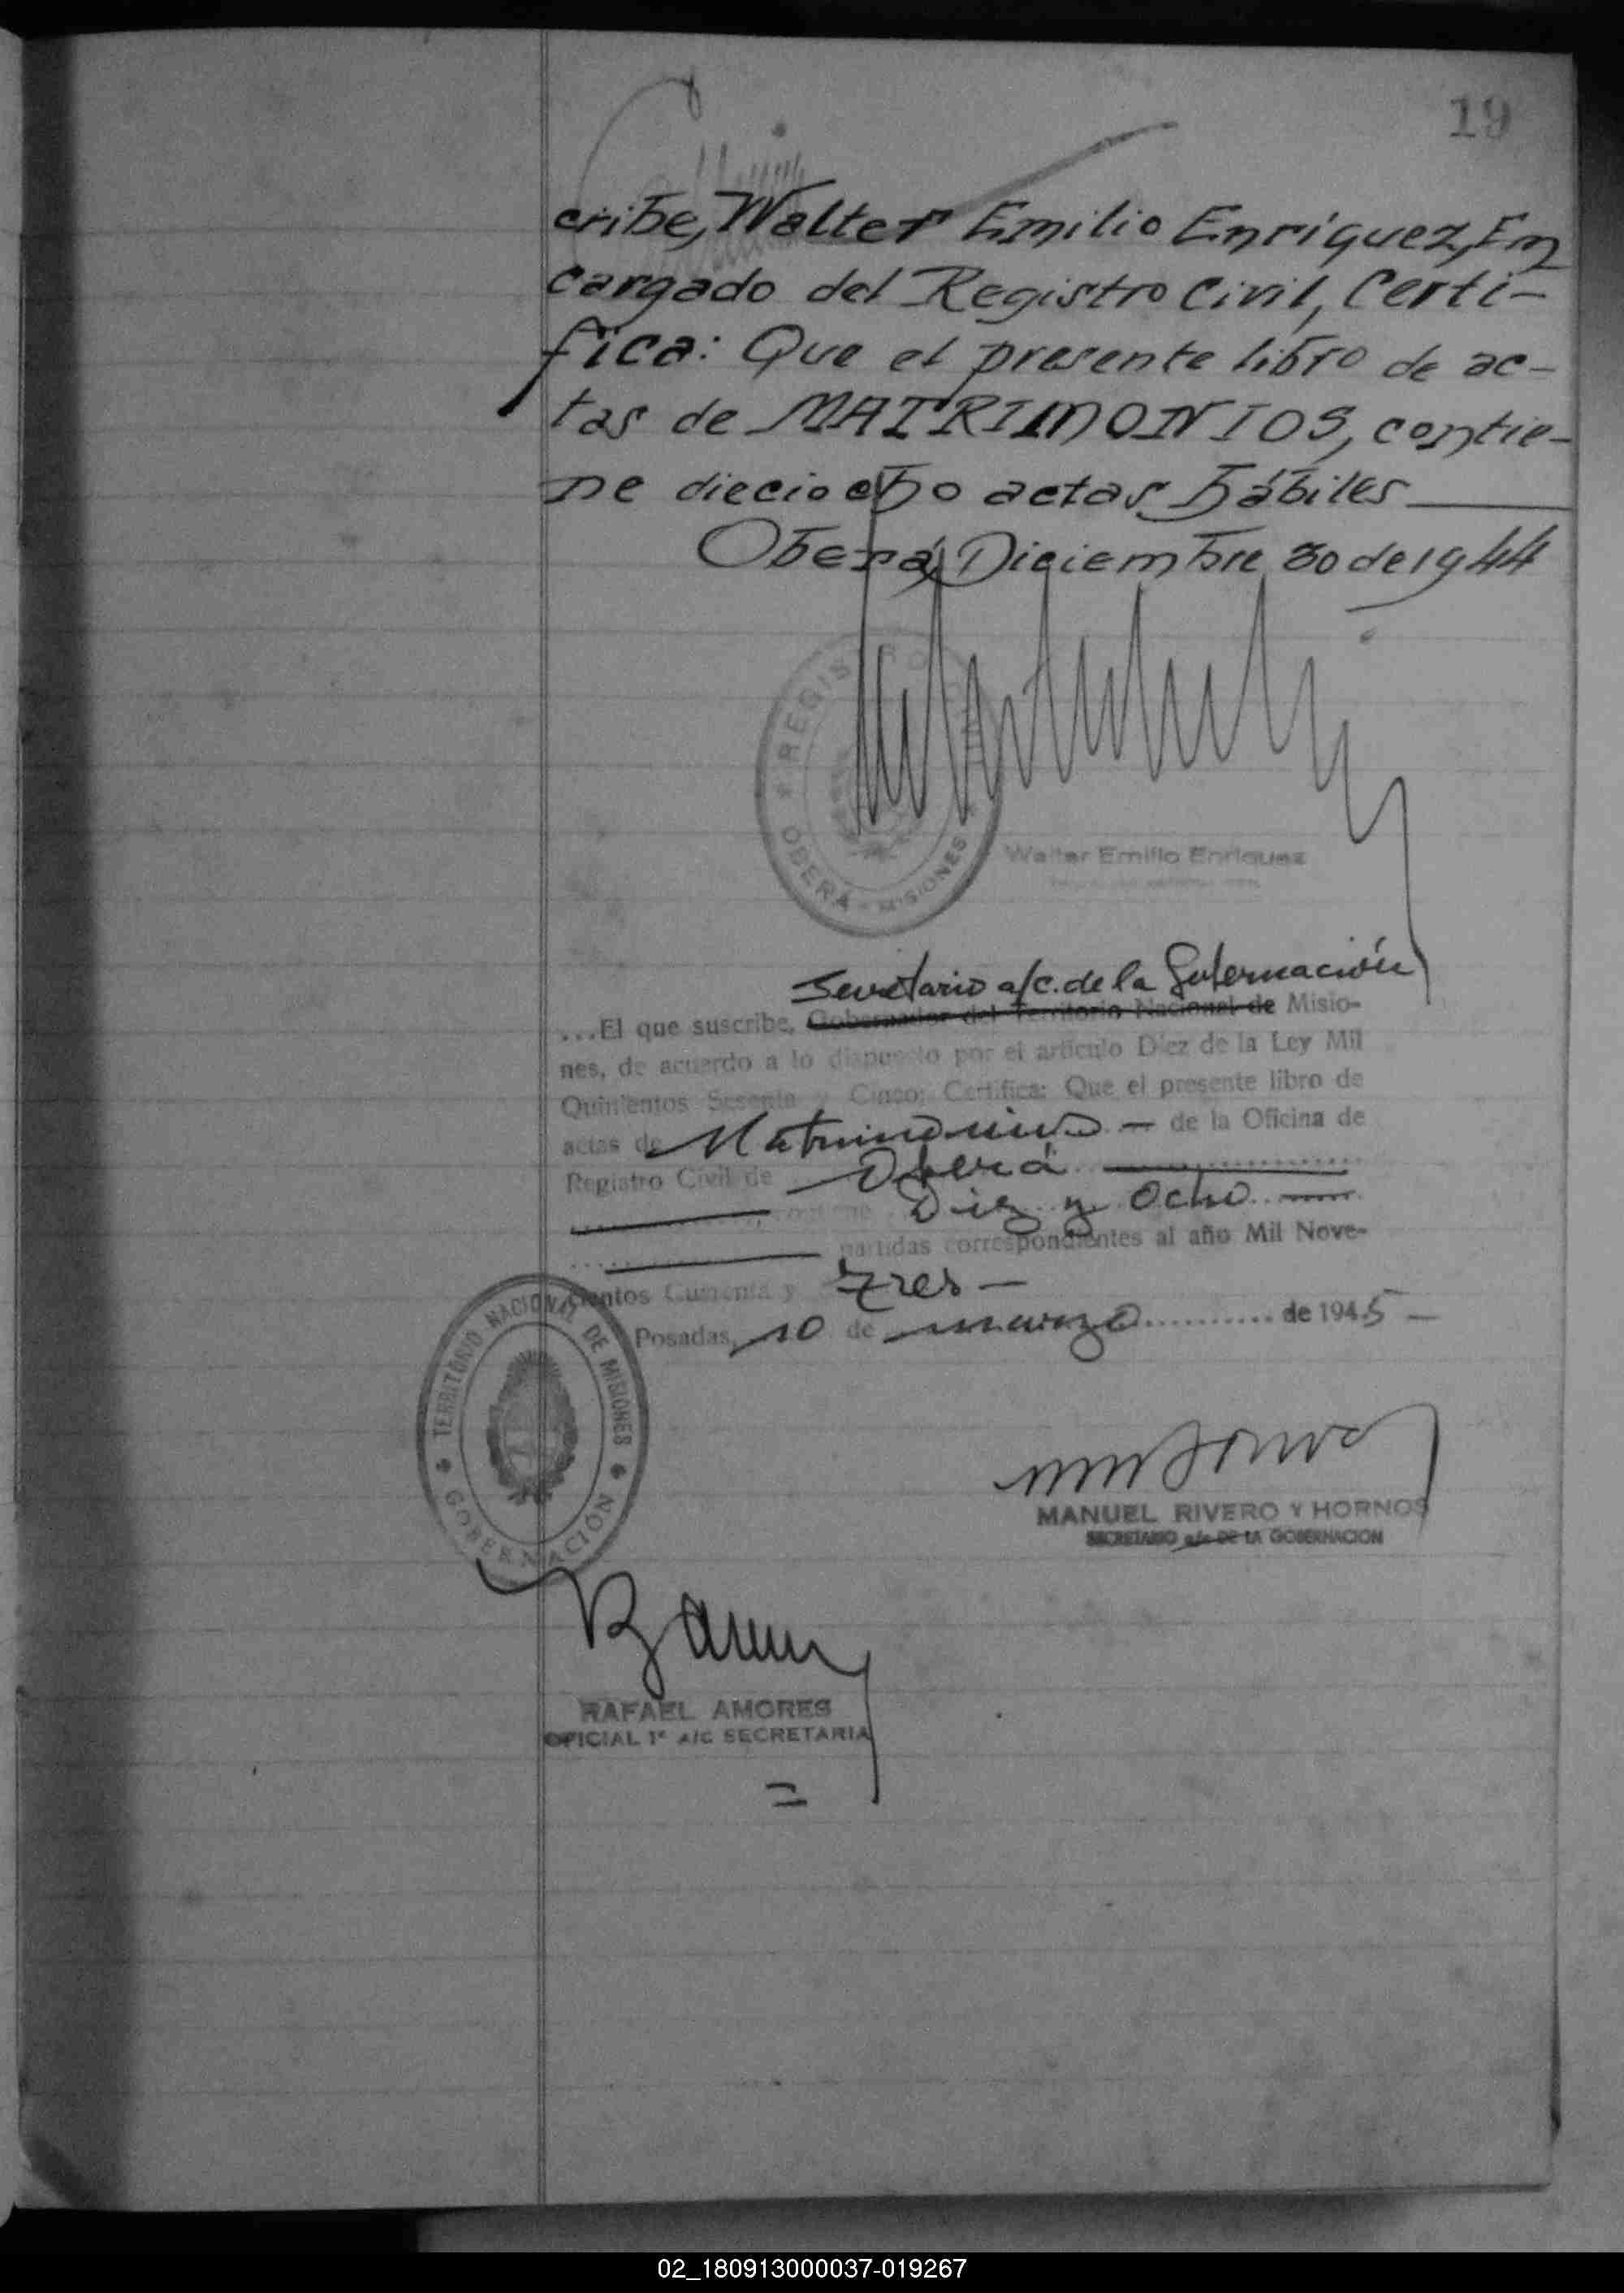 19
cribe, Walter Emilio Enríquez, En
cargado del Registro Civil, Certi-
fica: Que el presente libro de ac-
tas de MATRIMONIOS, contie-
ne dieciocho actas hábiles
Oberá, Diciembre 30 de 1944
REGISTRO CIVIL
OBERÁ - MISIONES
Walter Emilio Enriquez
Secretario a/c. de la Gobernación
...El que suscribe, Gobernador del Territorio Nacional de Misio-
nes, de acuerdo a lo dispuesto por el artículo Diez de la Ley Mil
Quinientos Sesenta y Cinco; Certifica: Que el presente libro de
actas de Matrimonios - de la Oficina de
Registro Civil de Oberá
contiene Diez y Ocho
partidas correspondientes al año Mil Nove-
cientos Cuarenta y tres -
Posadas, 10 de marzo .......... de 1945 -
TERRITORIO NACIONAL DE MISIONES
GOBERNACIÓN
MANUEL RIVERO Y HORNOS
SECRETARIO a/c DE LA GOBERNACION
RAFAEL AMORES
OFICIAL 1º A/C SECRETARIA
02_180913000037-019267